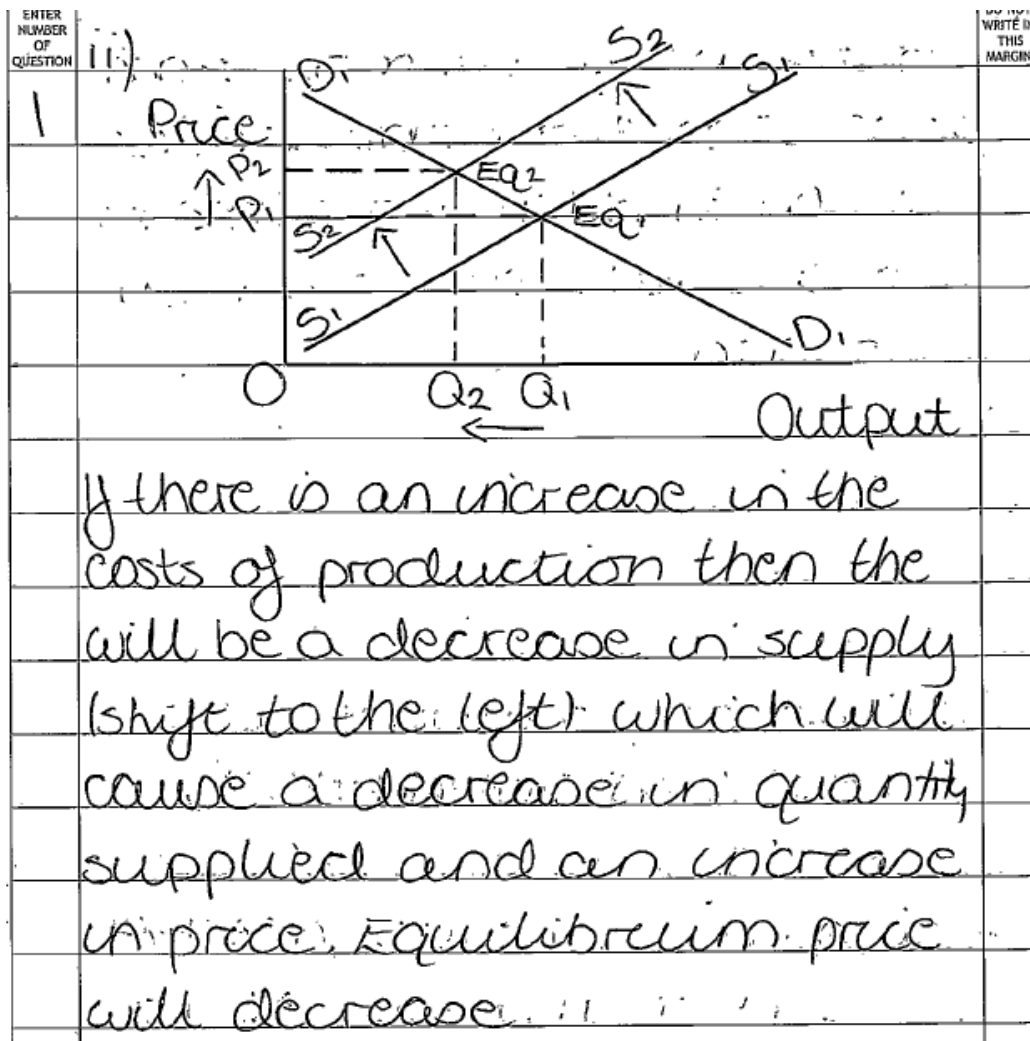 ENTER
NUMBER
OF
QUESTION
WRITE IN
THIS
MARGIN
ii)
1
D1
S2
S1
Price
P2
Eq2
P1
Eq1
S2
S1
D1
O
Q2 Q1
Output
If there is an increase in the
costs of production then the
will be a decrease in supply
(shift to the left) which will
cause a decrease in quantity
supplied and an increase
in price. Equilibrium price
will decrease